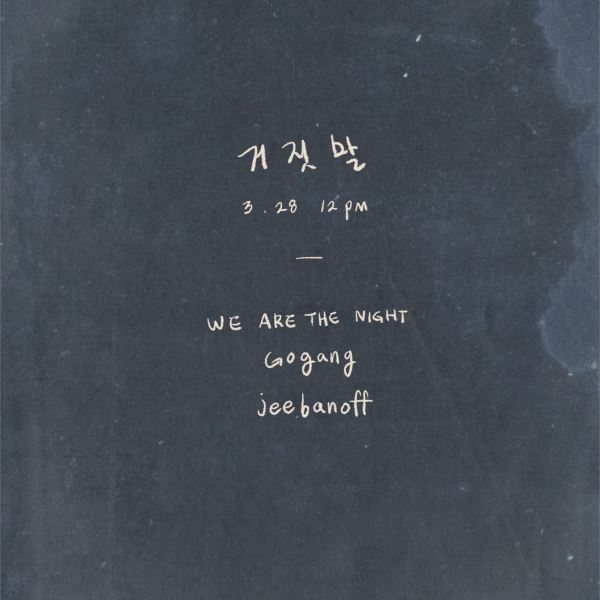 거짓말
3.28 12PM
WE ARE THE NIGHT
Gogang
jeebanoff